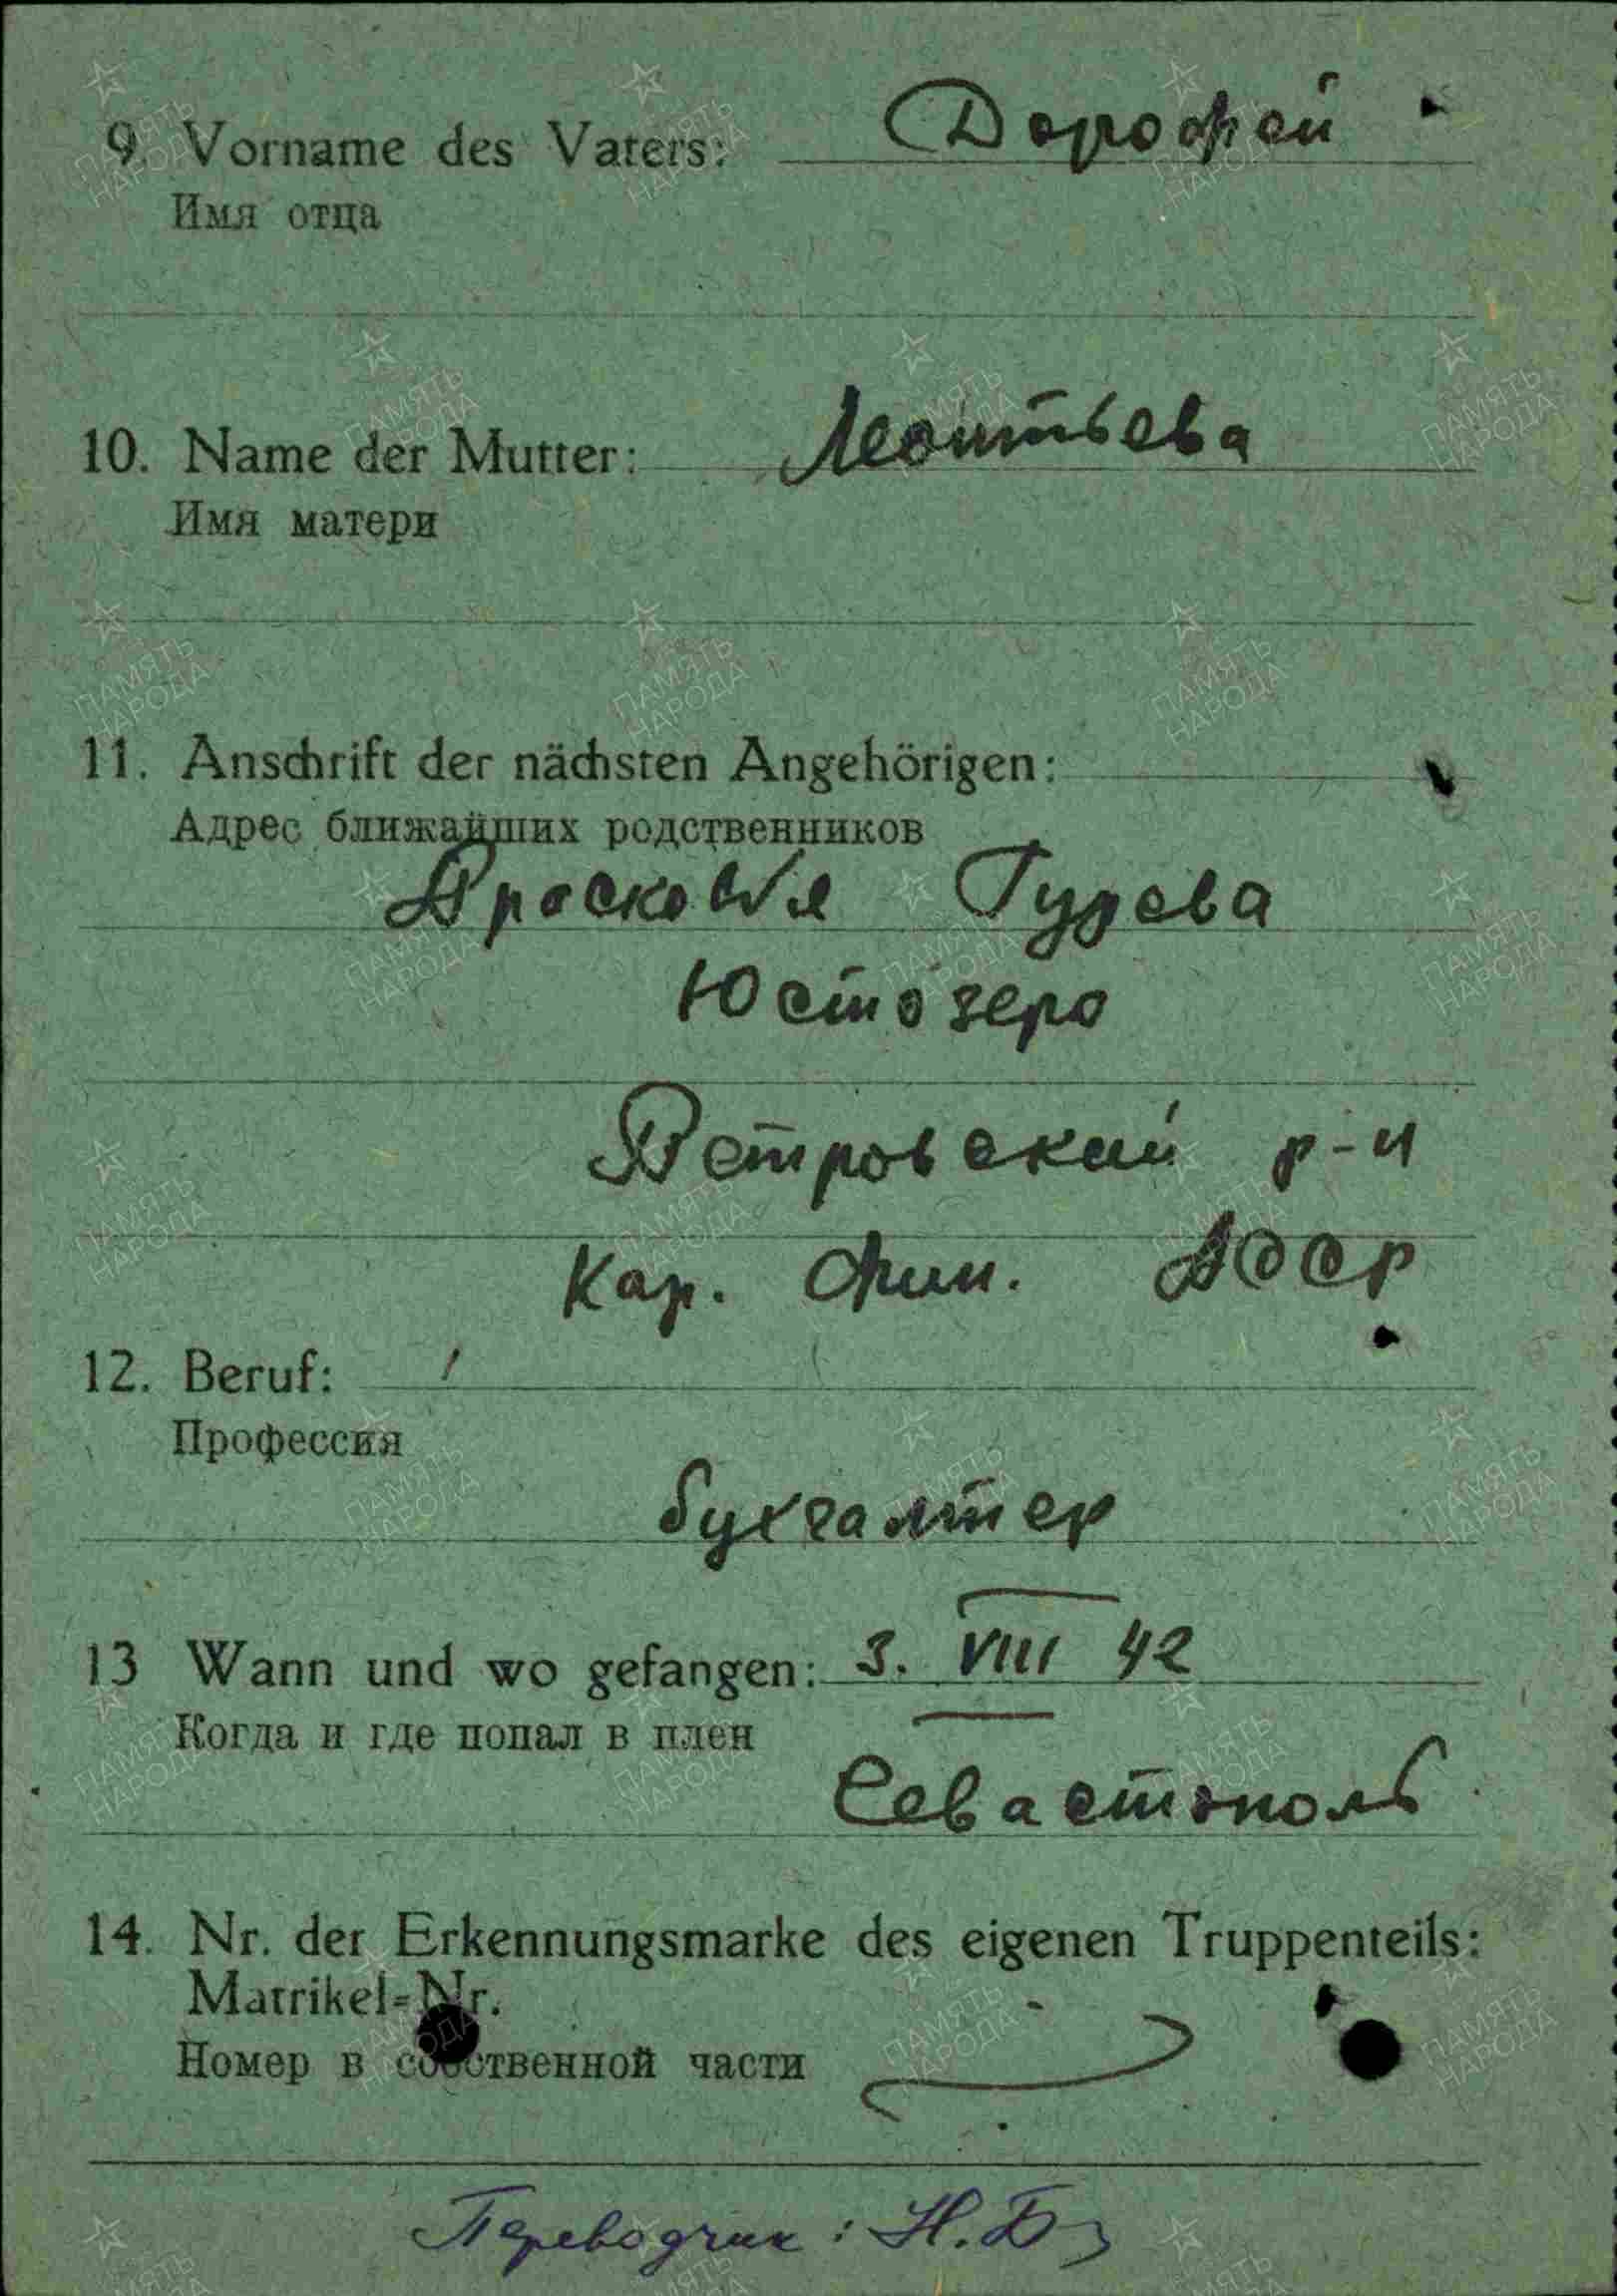 9. Vorname des Vaters: Дорофей
Имя отца
10. Name der Mutter: Леонтьева
Имя матери
11. Anschrift der nächsten Angehörigen:
Адрес ближайших родственников
Просковья Гурева
Юстозеро
Петровский р-н
Кар. Фин. АССР
12. Beruf:
Профессия
бухгалтер
13 Wann und wo gefangen: 3. VIII 42
Когда и где попал в плен
Севастополь
14. Nr. der Erkennungsmarke des eigenen Truppenteils:
Matrikel=Nr.
Номер в собственной части
Переводчик: Н.Б
ПАМЯТЬ
НАРОДА